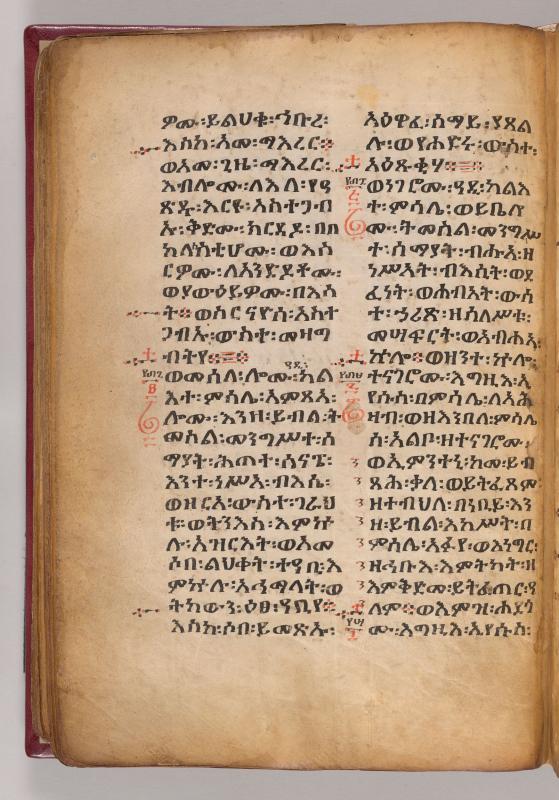 ዎሙ፡ይልህቁ፡ኅቡረ፡
እስከ፡አመ፡ማእረር።
ወአመ፡ጊዜ፡ማእረር፡
እብሎሙ፡ለእለ፡የዐ
ጽዱ፡እርዩ፡አስተጋብ
ኡ፡ቅድመ፡ክርዳደ፡በበ
ከላስስቲሆሙ፡ወእስ
ርዎሙ፡ለአንድዶቶሙ፡
ወያውዕይዎሙ፡በእሳ
ት።ወስርናየሰ፡አስተ
ጋብኡ፡ውስተ፡መዛግ
ብትየ።
ወመሰለ፡ሎሙ፡ካል
አተ፡ምሳሌ፡አምጽአ፡
ሎሙ፡እንዘ፡ይብል፡ት
መስል፡መንግሥተ፡ሰ
ማያት፡ሕጠተ፡ሰናፔ፡
እንተ፡ነሥአ፡ብእሲ፡
ወዘርአ፡ውስተ፡ገራህ
ቱ።ወትንእስ፡እምኵ
ሉ፡አዝርእት፡ወእመ
ሶበ፡ልህቀት፡ተዓቢ፡እ
ምኵሉ፡አሕማላት፡ወ
ትከውን፡ዕፀ፡ዓቢየ።
እስከ፡ሶበ፡ይመጽኡ፡
አዕዋፈ፡ሰማይ፡ያጸል
ሉ፡ወየሐድሩ፡ውስተ፡
አዕጹቂሃ።
ወነገሮሙ፡ዓዲ፡ካልእ
ተ፡ምሳሌ፡ወይቤሎ
ሙ፡ትመስል፡መንግሥ
ተ፡ሰማያት፡ብሑአ፡ዘ
ነሥአት፡ብእሲት፡ወደ
ፈነት፡ወሐብአት፡ውስ
ተ፡ኃሪጽ፡ዘሠለሥቱ፡
መሣፍርት፡ወአብሐእ
ኵሎ።ወዘንተ፡ኵሎ፡
ተናገሮሙ፡እግዚእ፡ኢ
የሱስ፡በምሳሌ፡ለአሕ
ዛብ፡ወዘእንበለ፡ምሳሌ
ሰ፡አልቦ፡ዘተናገሮሙ፡
ወኢምንተኒ፡ከመ፡ይብ
ጻሕ፡ቃለ፡ወይትፈጸም
ዘተብህለ፡በነቢይ፡እን
ዘ፡ይብል፡እከሥት፡በ
ምሳሌ፡አፉየ፡ወእነግር፡
ዘኅቡእ፡እምትካት፡ዘ
እምቅድመ፡ይትፈጠር፡ዓ
ለም።ወእምዝ፡ሐደጎ
ሙ፡እግዚእ፡ኢየሱስ፡